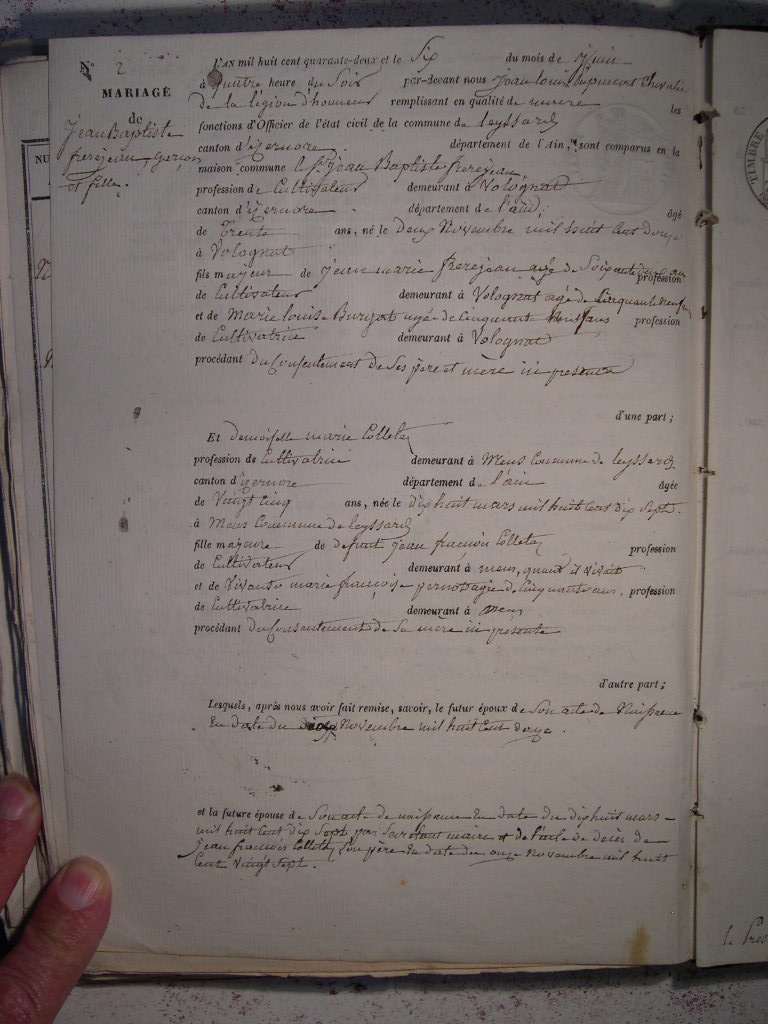 N.° 2
MARIAGE
de
Jean Baptiste
frerejean garçon
et fille.
L'AN mil huit cent quarante-deux et le Six du mois de Juin
à quatre heure du Soir par-devant nous Jean louis Chevalier
de la légion d'honneur remplissant en qualité de maire les
fonctions d'Officier de l'état civil de la commune de leyssard
canton d'izernore département de l'Ain, sont comparus en la
maison commune le Sr. jean Baptiste frerejean,
profession de Cultivateur demeurant à Volognat
canton d'izernore département de l'ain, âgé
de Trente ans, né le deux Novembre mil huit Cent douze
à Volognat
fils majeur de jean marie frerejean agé de Soixante ans profession
de Cultivateur demeurant à Volognat agé de Cinquante neuf ans
et de Marie louise Burgat agée de Cinquante Neuf ans profession
de Cultivatrice demeurant à Volognat
procédant du Consentement de Ses pere et mère ici presents
d'une part;
Et demoiselle marie Colletaz
profession de Cultivatrice demeurant à Mens Commune de leyssard
canton d'izernore département de l'ain âgée
de Vingt Cinq ans, née le dix huit mars mil huit Cent dix Sept.
à Mens Commune de leyssard
fille majeure de defunt jean françois Colletaz profession
de Cultivateur demeurant à mens, quand il vivait
et de Vivante marie françoise agée de Cinquante ans, profession
de Cultivatrice demeurant à Mens
procédant du Consentement de Sa mère ici presente
d'autre part;
Lesquels, après nous avoir fait remise, savoir, le futur époux de Son acte de Naissance
En date du Novembre mil huit Cent douze.
et la future épouse de Son acte de naissance En date du dix huit mars
mil huit Cent dix Sept par maire et de l'acte de décès de
jean francois Colletaz Son père En date du onze Novembre mil huit
Cent Vingt Sept.
TIMBRE